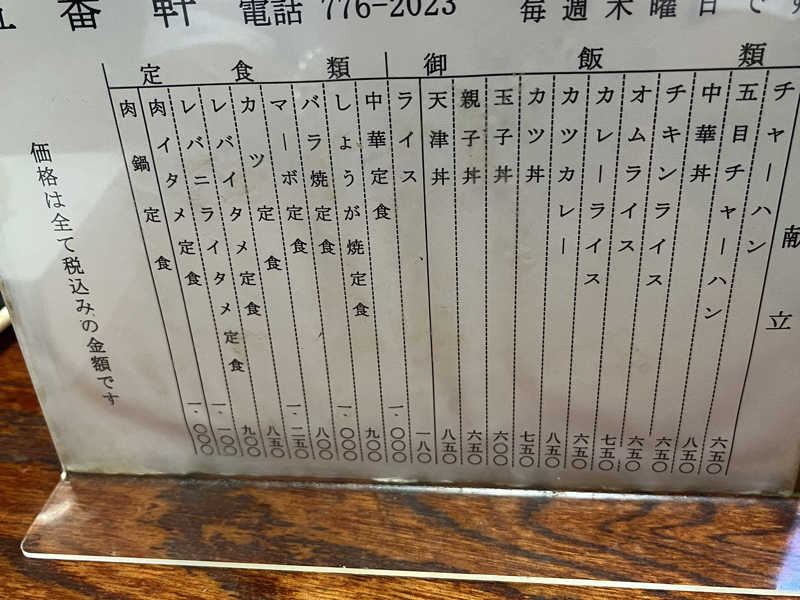 五番軒 電話 776-2023 毎週木曜日です
献立
御飯類
チャーハン 六五〇
五目チャーハン 八五〇
中華丼 六五〇
チキンライス 六五〇
オムライス 七五〇
カレーライス 六五〇
カツカレー 八五〇
カツ丼 七五〇
玉子丼 六〇〇
親子丼 六五〇
天津丼 八五〇
定食類
ライス 一八〇
中華定食 一、〇〇〇
しょうが焼定食 九〇〇
バラ焼定食 一、〇〇〇
マーボ定食 八〇〇
カツ定食 一、二五〇
レバイタメ定食 八五〇
レバニライタメ定食 九〇〇
肉イタメ定食 一、一〇〇
肉鍋定食 一、〇〇〇
価格は全て税込みの金額です